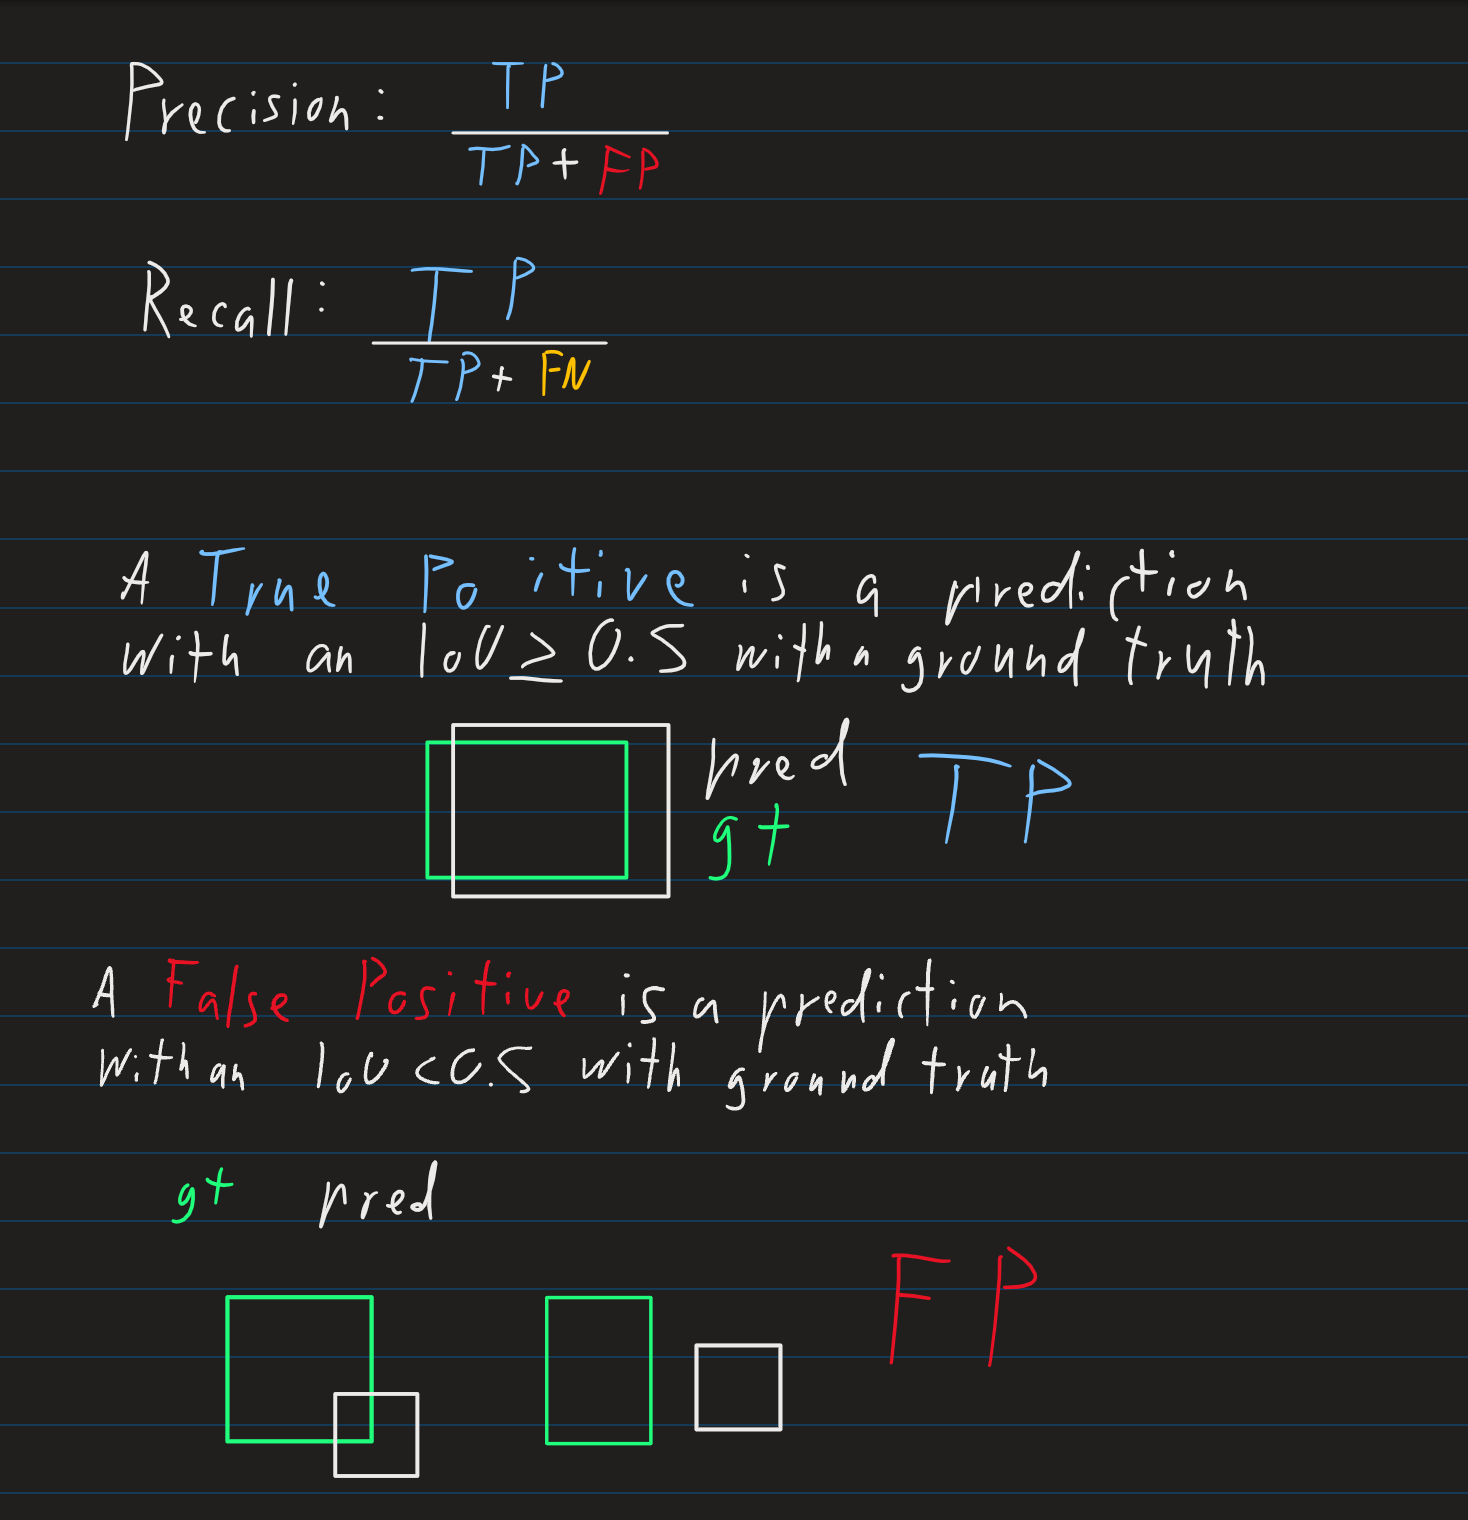 Precision: TP
TP + FP
Recall: TP
TP + FN
A True Po itive is a prediction
with an IoU ≥ 0.5 with a ground truth
pred
gt
TP
A False Positive is a prediction
with an IoU < 0.5 with ground truth
gt pred
FP